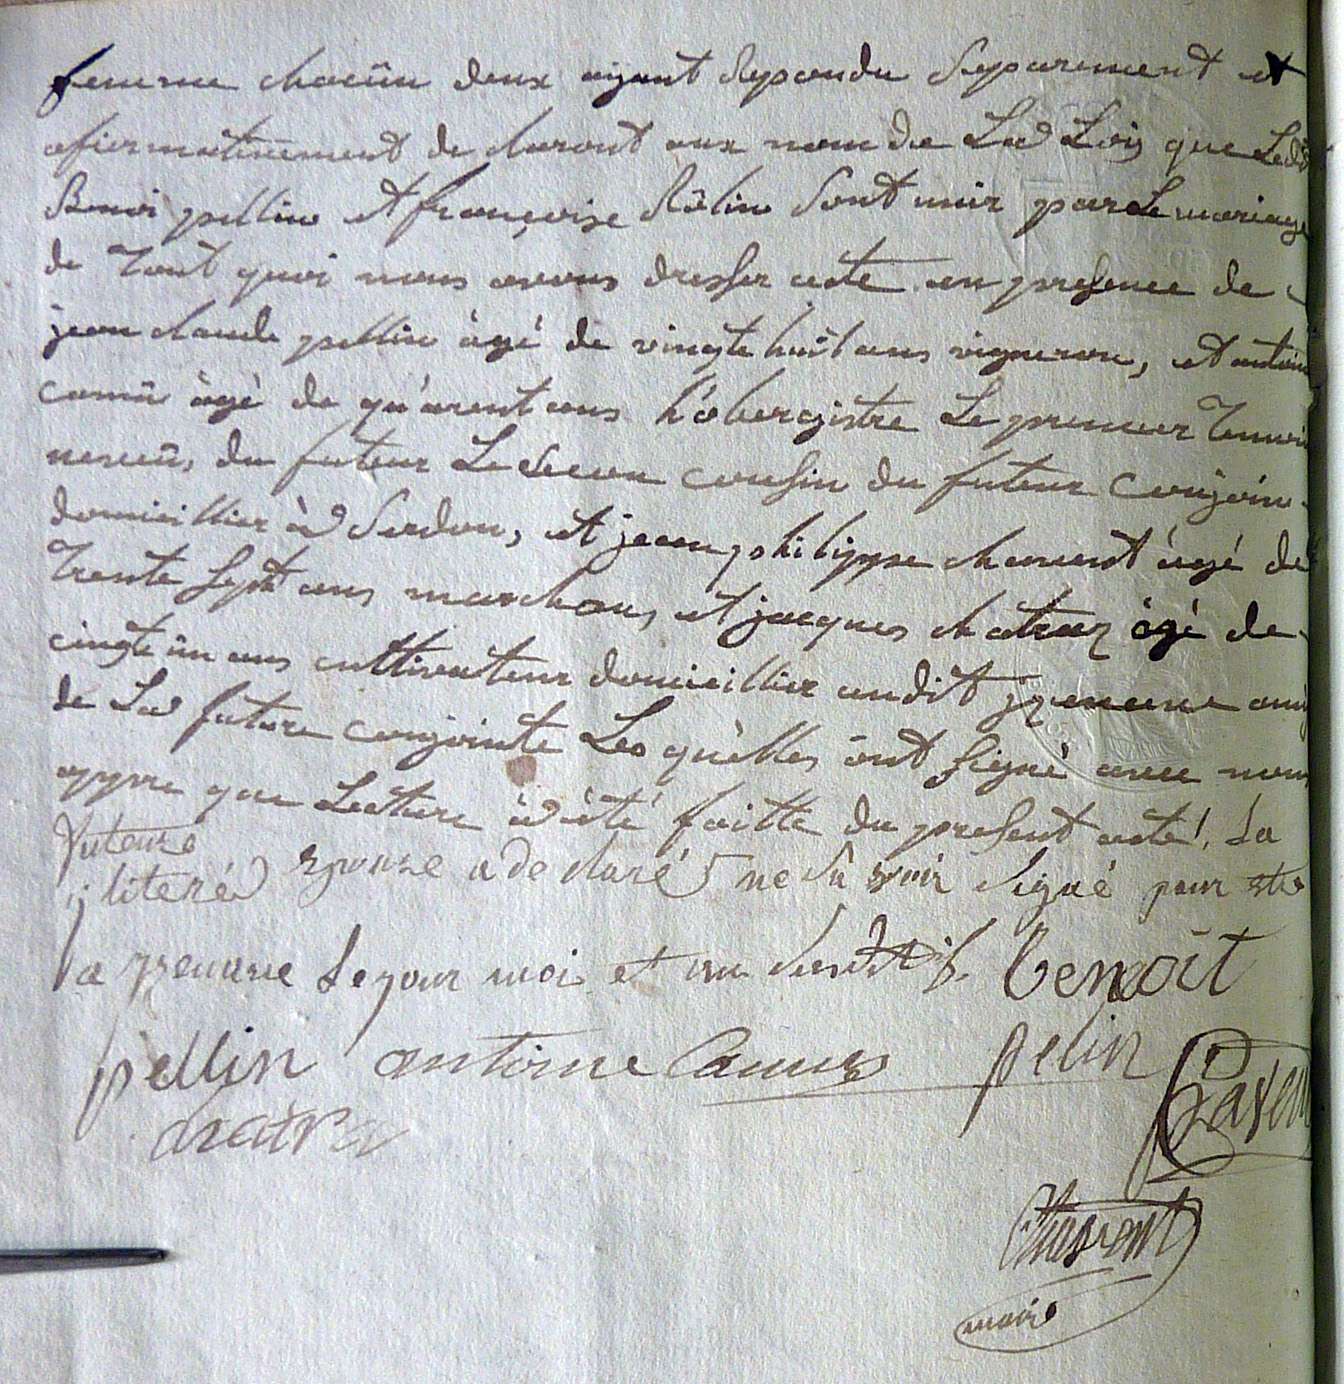 femme chacûn deux aÿant Repondu Separement et
afirmativement declaront aux nom de La Loÿ que Ledit
Benoi pellin et françoise Râlin sont unir par Le mariage
de Tout quoi nous avons dresser acte en presence de
jean claude pellin àgé de vingte huit ans vigneron, et antoine
camû àgè de qu'arent ans h'obergistre Le premier Temoin
neveû, du futeur Le secon cousin du futeur Conjoin
domicillier à Serdon, et jean philippe charvent àgé de
Trente sept ans marchans, et jacques chatraz àgè de
cingte ûn ans cultivateur domicillier audit amis
de La future conjointe Les qu'elles ont signé avec nous
appre que Lecture à èté faitte du present acte! La
futeure
jliteré epouze a de claré ne sa voir Signé pour etre
a Le jour moi et an susdit Benoit
pellin antoine Camus pelin
chatra
maire